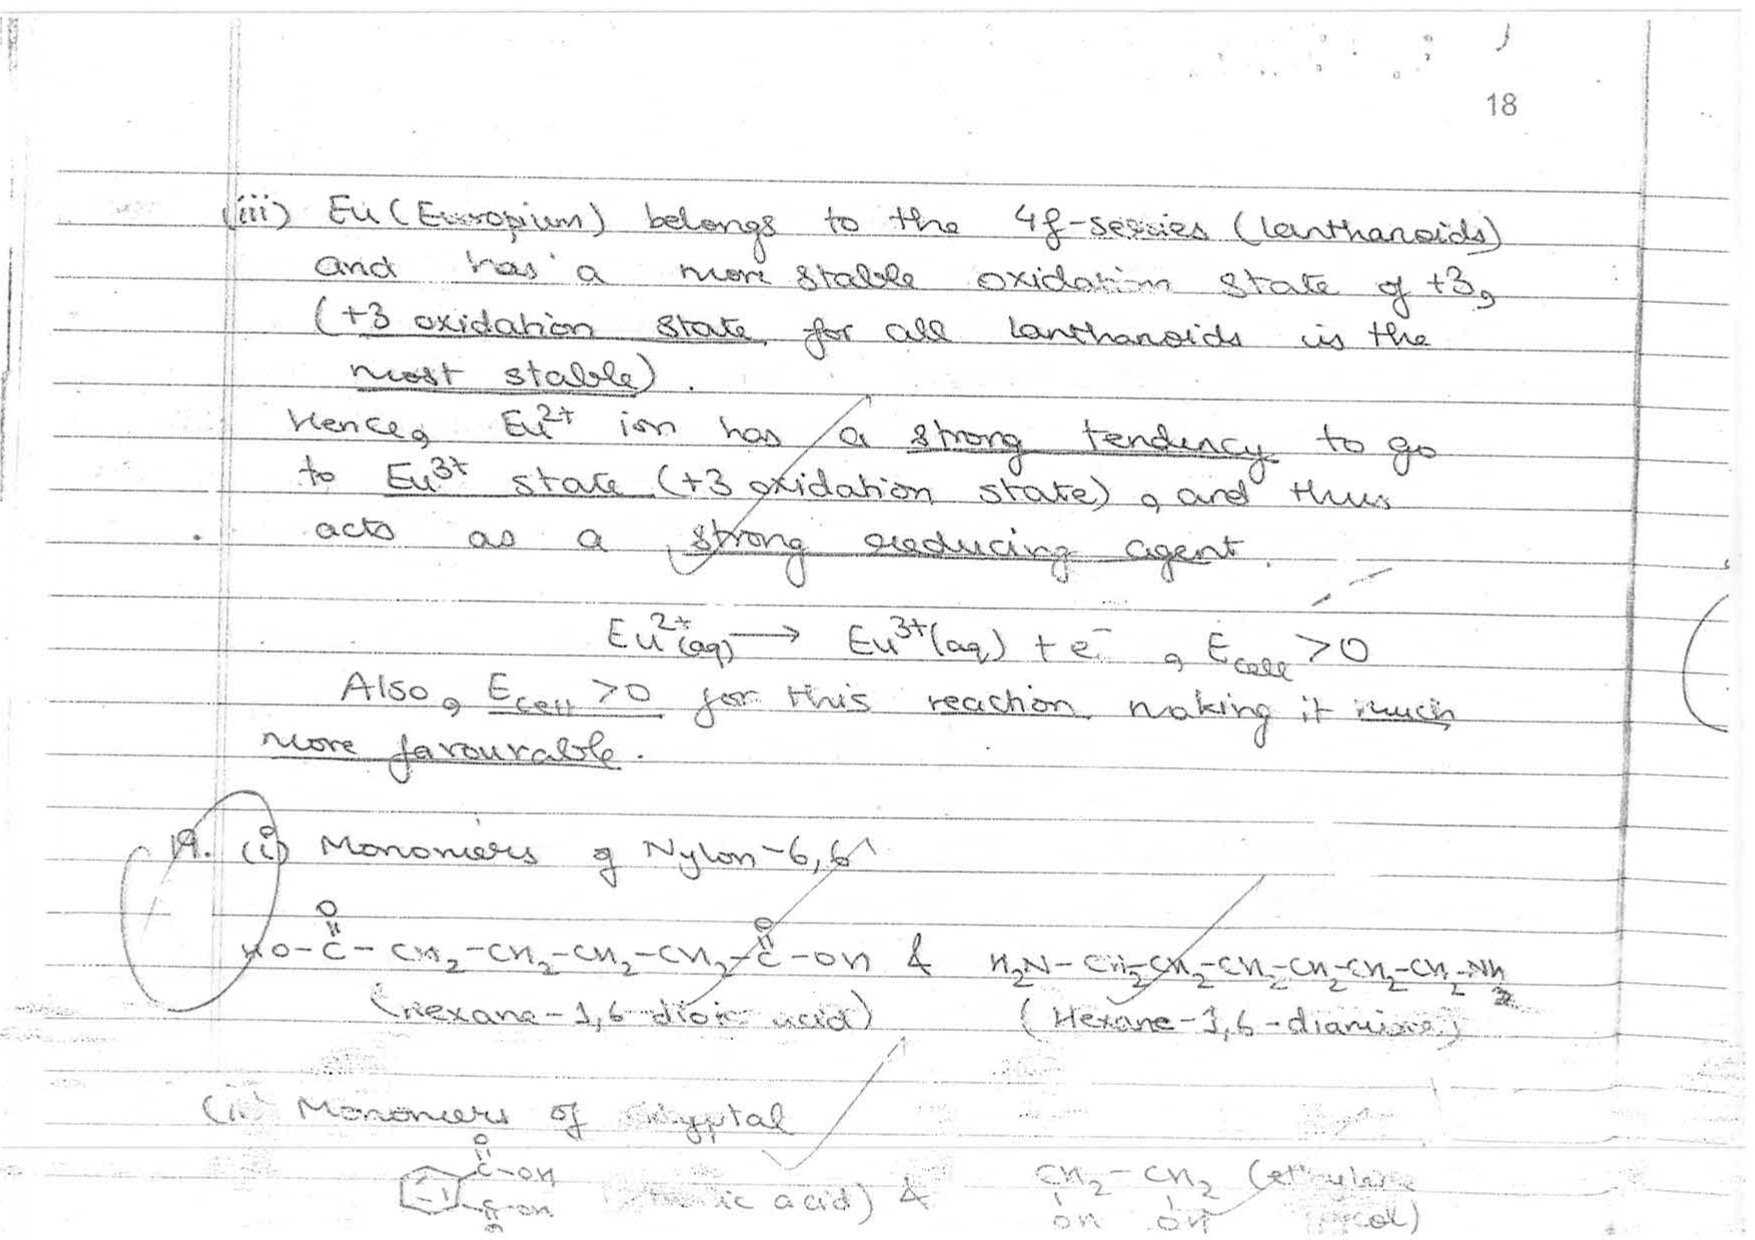 18
(iii) Eu (Europium) belongs to the 4f-series (lanthanoids)
and has a more stable oxidation state of +3,
(+3 oxidation state for all lanthanoids is the
most stable).
Hence, Eu²⁺ ion has a strong tendency to go
to Eu³⁺ state (+3 oxidation state), and thus
acts as a strong reducing agent.
Eu²⁺(aq) → Eu³⁺(aq) + e⁻, E cell > 0
Also, E cell > 0 for this reaction making it much
more favourable.
19. (i) Monomers of Nylon-6,6
HO-C(=O)-CH₂-CH₂-CH₂-CH₂-C(=O)-OH & H₂N-CH₂-CH₂-CH₂-CH₂-CH₂-CH₂-NH₂
(Hexane-1,6-dioic acid) (Hexane-1,6-diamine)
(ii) Monomers of
C-OH O
C-OH O acid) & CH₂-CH₂ (ethylene
OH OH